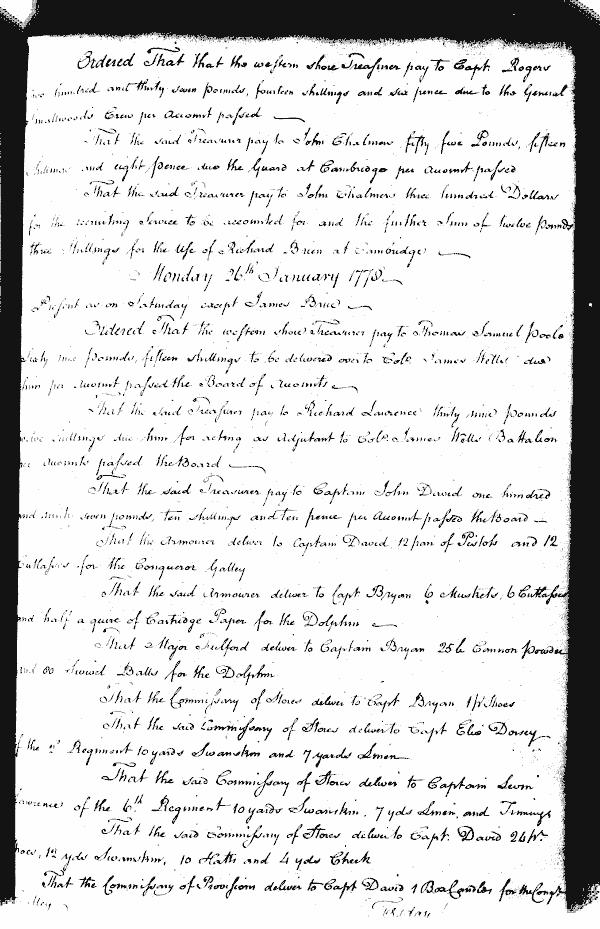 Ordered That that the western shore Treasurer pay to Capt. Rogers
two hundred and thirty seven pounds, fourteen shillings and six pence due to the General
Smallwoods Crew per Account passed
That the said Treasurer pay to John Chalmers fifty five Pounds, fifteen
shillings and eight pence due the Guard at Cambridge per Account passed
That the said Treasurer pay to John Chalmers three hundred Dollars
for the recruiting Service to be accounted for and the further Sum of twelve pounds
three Shillings for the Use of Richard Brien at Cambridge
Monday 26th January 1778
Present as on Saturday except James Brice
Ordered That the western shore Treasurer pay to Thomas Samuel Poole
Sixty nine pounds, fifteen shillings to be delivered over to Colo James Wells due
him per Account passed the Board of Accounts
That the said Treasurer pay to Richard Lawrence thirty nine pounds
twelve shillings due him for acting as Adjutant to Colo. James Wells Battalion
per Accounts passed the Board
That the said Treasurer pay to Captain John David one hundred
and ninty seven pounds, ten shillings and ten pence per Account passed the Board
That the Armourer deliver to Captain David 12 pair of Pistols and 12
Cutlasses for the Conqueror Galley
That the said Armourer deliver to Capt Bryan 6 Muskets, 6 Cutlasses
and half a quire of Cartridge Paper for the Dolphin
That Major Fulford deliver to Captain Bryan 25 lb Cannon Powder
and 80 Swivel Balls for the Dolphin
That the Commissary of Stores deliver to Capt Bryan 1 pr Shoes
That the said Commissary of Stores deliver to Capt Elie Dorsey
of the 2d Regiment 10 yards Swanskin and 7 yards Linen
That the said Commissary of Stores deliver to Captain Levin
Lawrence of the 6th Regiment 10 yards Swanskin, 7 yds Linen, and Trimings
That the said Commissary of Stores deliver to Capt. David 24 pr
Shoes, 12 yds Swanskin, 10 Hatts and 4 yds Check
That the Commissary of Provisions deliver to Capt David 1 Box Candles for the Conqr
Galley
Tuesday